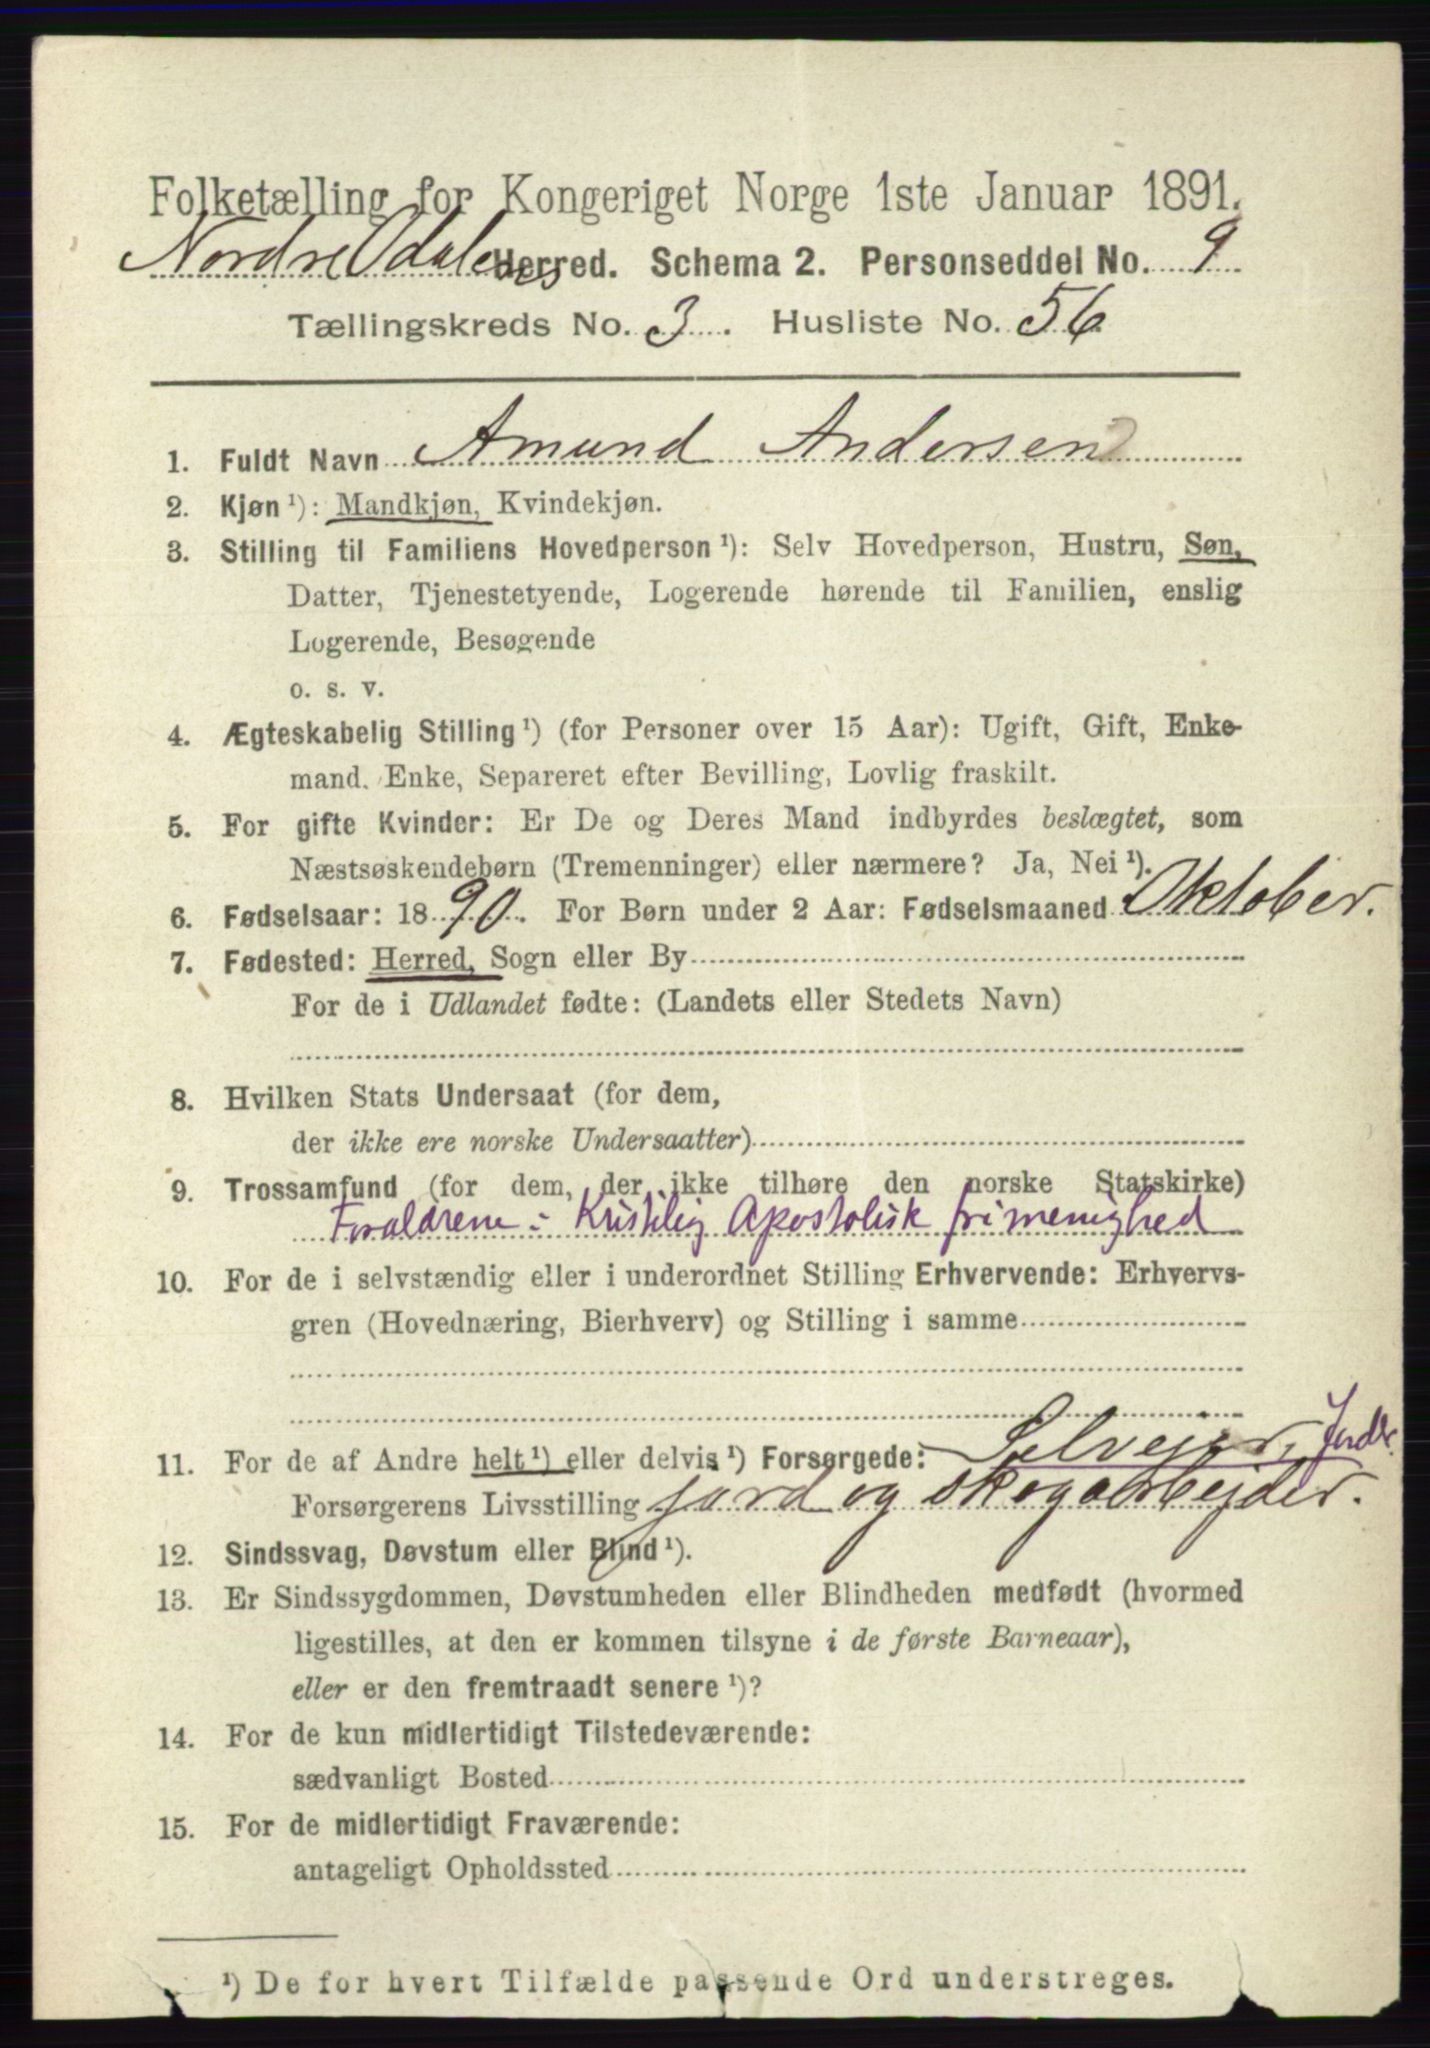 Folketælling for Kongeriget Norge 1ste Januar 1891.
Nordre Odalens Herred. Schema 2. Personseddel No. 9
Tællingskreds No. 3. Husliste No. 56
1. Fuldt Navn Amund Andersen
2. Kjøn ¹): Mandkjøn, Kvindekjøn.
3. Stilling til Familiens Hovedperson ¹): Selv Hovedperson, Hustru, Søn,
Datter, Tjenestetyende, Logerende hørende til Familien, enslig
Logerende, Besøgende
o. s. v.
4. Ægteskabelig Stilling ¹) (for Personer over 15 Aar): Ugift, Gift, Enke-
mand, Enke, Separeret efter Bevilling, Lovlig fraskilt.
5. For gifte Kvinder: Er De og Deres Mand indbyrdes beslægtet, som
Næstsøskendebørn (Tremenninger) eller nærmere? Ja, Nei ¹).
6. Fødselsaar: 1890. For Børn under 2 Aar: Fødselsmaaned Oktober.
7. Fødested: Herred, Sogn eller By
For de i Udlandet fødte: (Landets eller Stedets Navn)
8. Hvilken Stats Undersaat (for dem,
der ikke ere norske Undersaatter)
9. Trossamfund (for dem, der ikke tilhøre den norske Statskirke)
Foraldrene:- Kristilig Apostolisk frimenighed
10. For de i selvstændig eller i underordnet Stilling Erhvervende: Erhvervs-
gren (Hovednæring, Bierhverv) og Stilling i samme
11. For de af Andre helt ¹) eller delvis ¹) Forsørgede: Selvejer, Jordbr.
Forsørgerens Livsstilling jord og skogarbejder.
12. Sindssvag, Døvstum eller Blind ¹).
13. Er Sindssygdommen, Døvstumheden eller Blindheden medfødt (hvormed
ligestilles, at den er kommen tilsyne i de første Barneaar),
eller er den fremtraadt senere ¹)?
14. For de kun midlertidigt Tilstedeværende:
sædvanligt Bosted
15. For de midlertidigt Fraværende:
antageligt Opholdssted
¹) De for hvert Tilfælde passende Ord understreges.